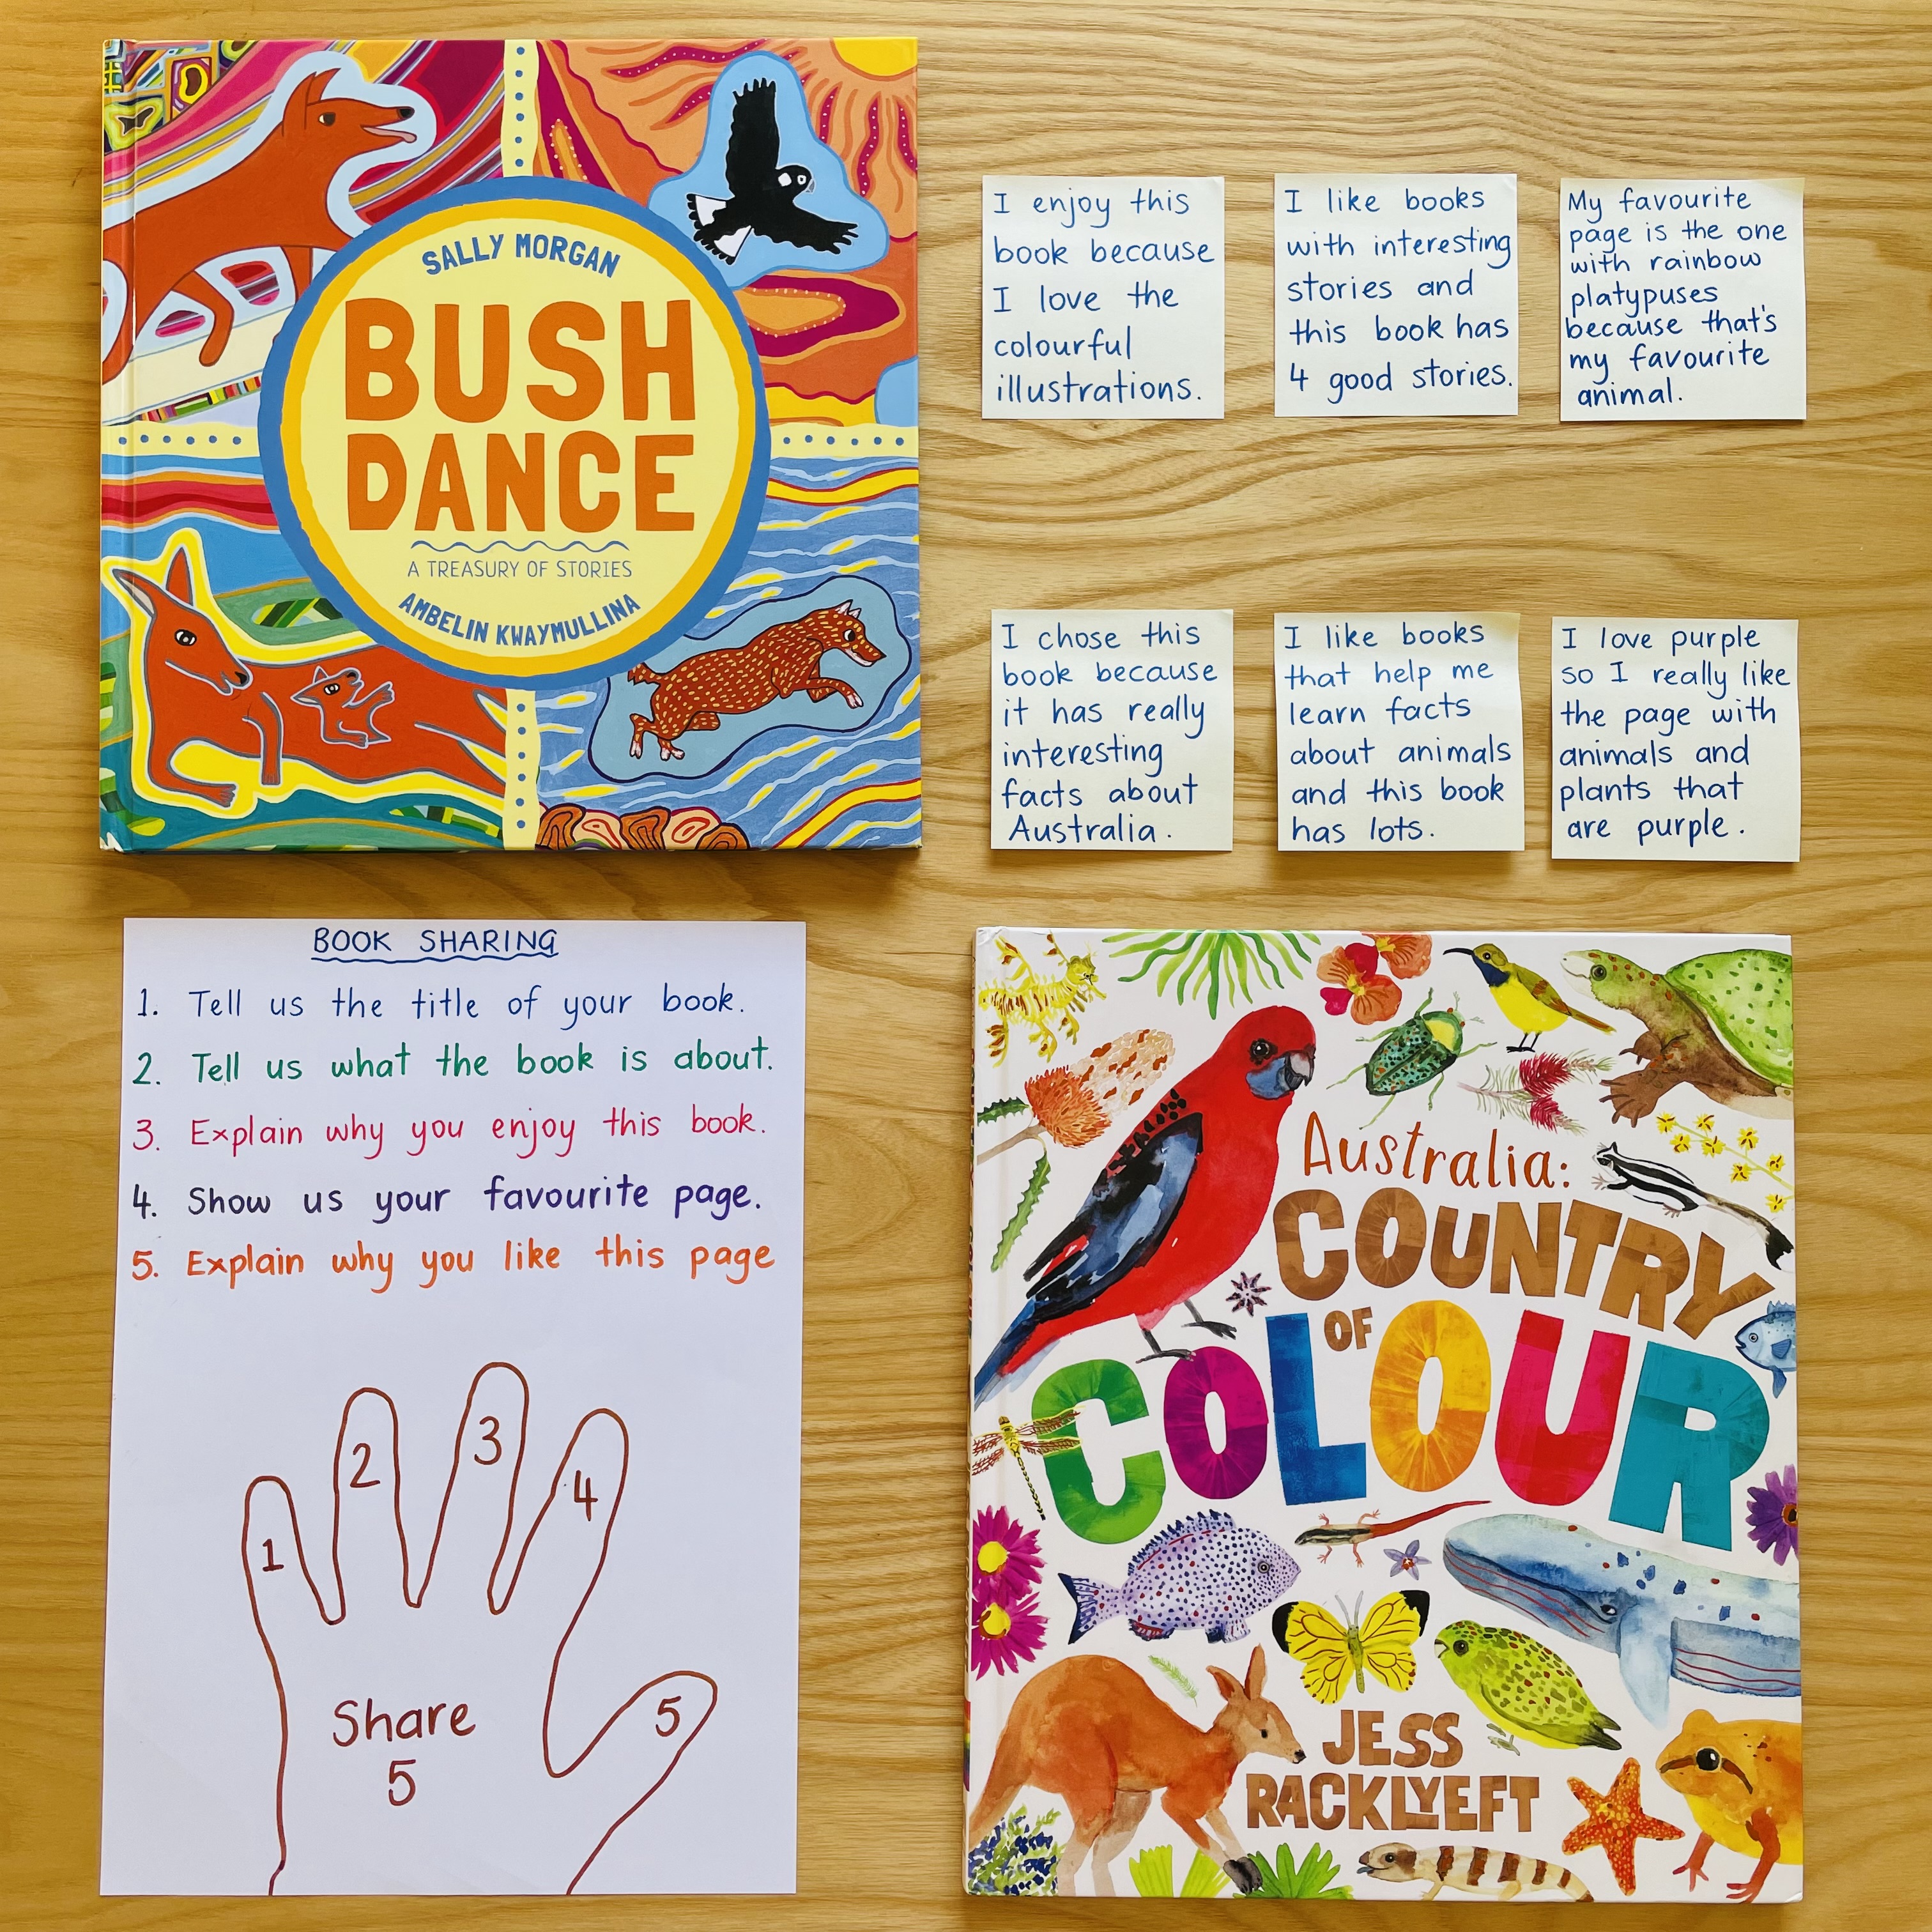 SALLY MORGAN
BUSH
DANCE
A TREASURY OF STORIES
AMBELIN KWAYMULLINA
I enjoy this
book because
I love the
colourful
illustrations.
I like books
with interesting
stories and
this book has
4 good stories.
My favourite
page is the one
with rainbow
platypuses
because that's
my favourite
animal.
I chose this
book because
it has really
interesting
facts about
Australia.
I like books
that help me
learn facts
about animals
and this book
has lots.
I love purple
so I really like
the page with
animals and
plants that
are purple.
BOOK SHARING
1. Tell us the title of your book.
2. Tell us what the book is about.
3. Explain why you enjoy this book.
4. Show us your favourite page.
5. Explain why you like this page
1
2
3
4
5
Share
5
Australia:
COUNTRY
OF
COLOUR
JESS
RACKLYEFT